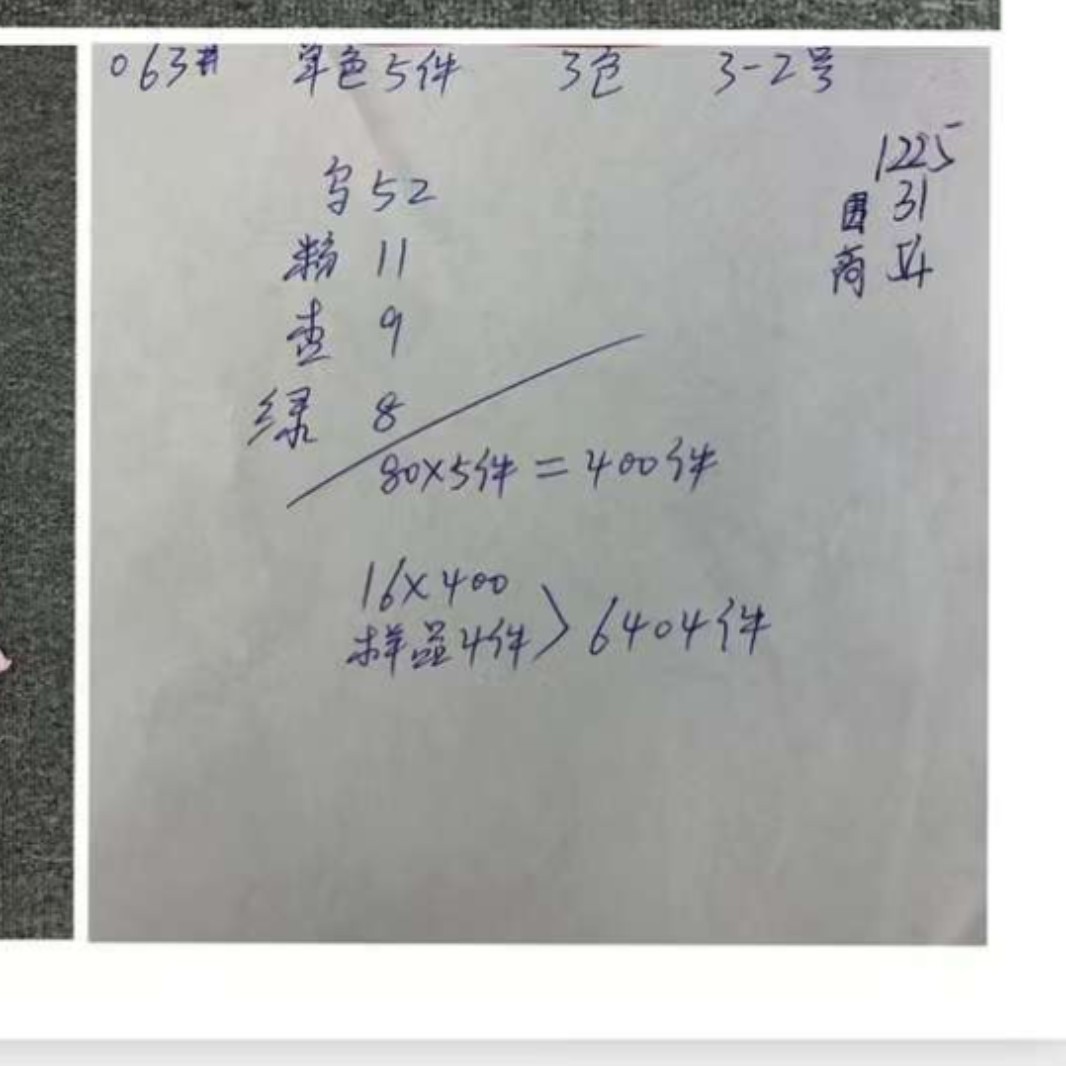 063# 单色5件 3色 3-2号
1225
31
商
52
粉 11
杏 9
绿 8
80×5件=400件
16×400
样品4件 > 6404件